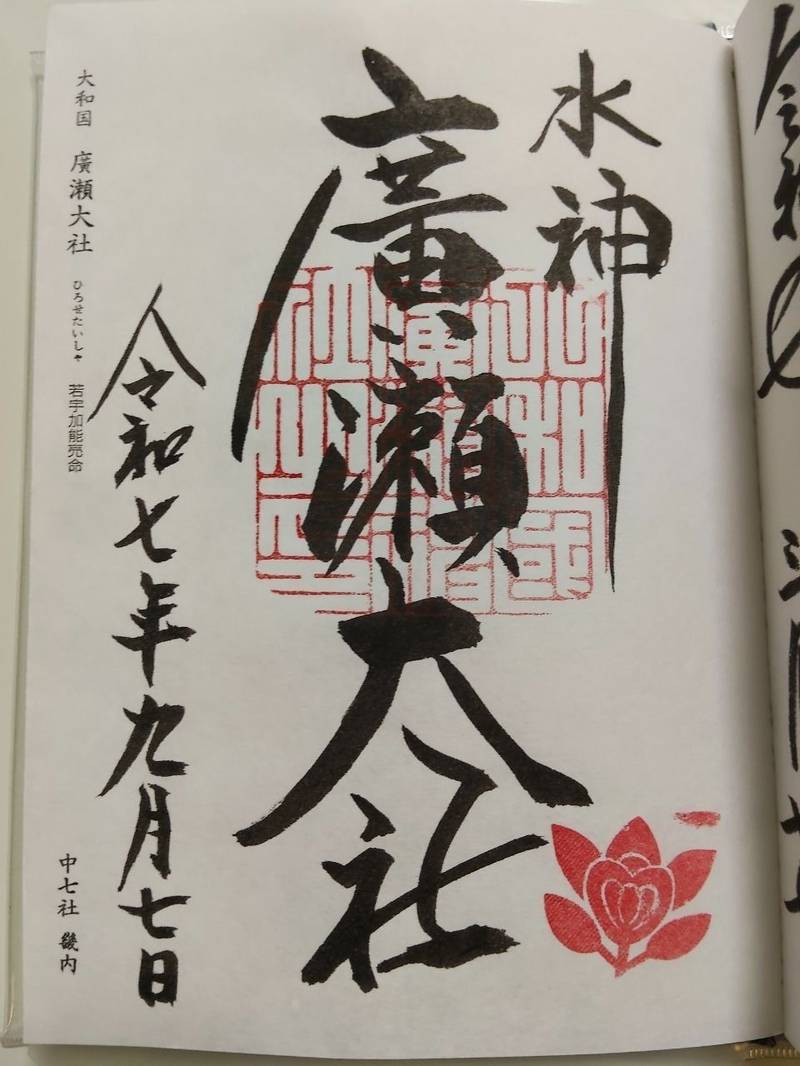 水神
廣瀬大社
令和七年九月七日
大和国 廣瀬大社 ひろせたいしゃ 若宇加能売命
中七社 畿内